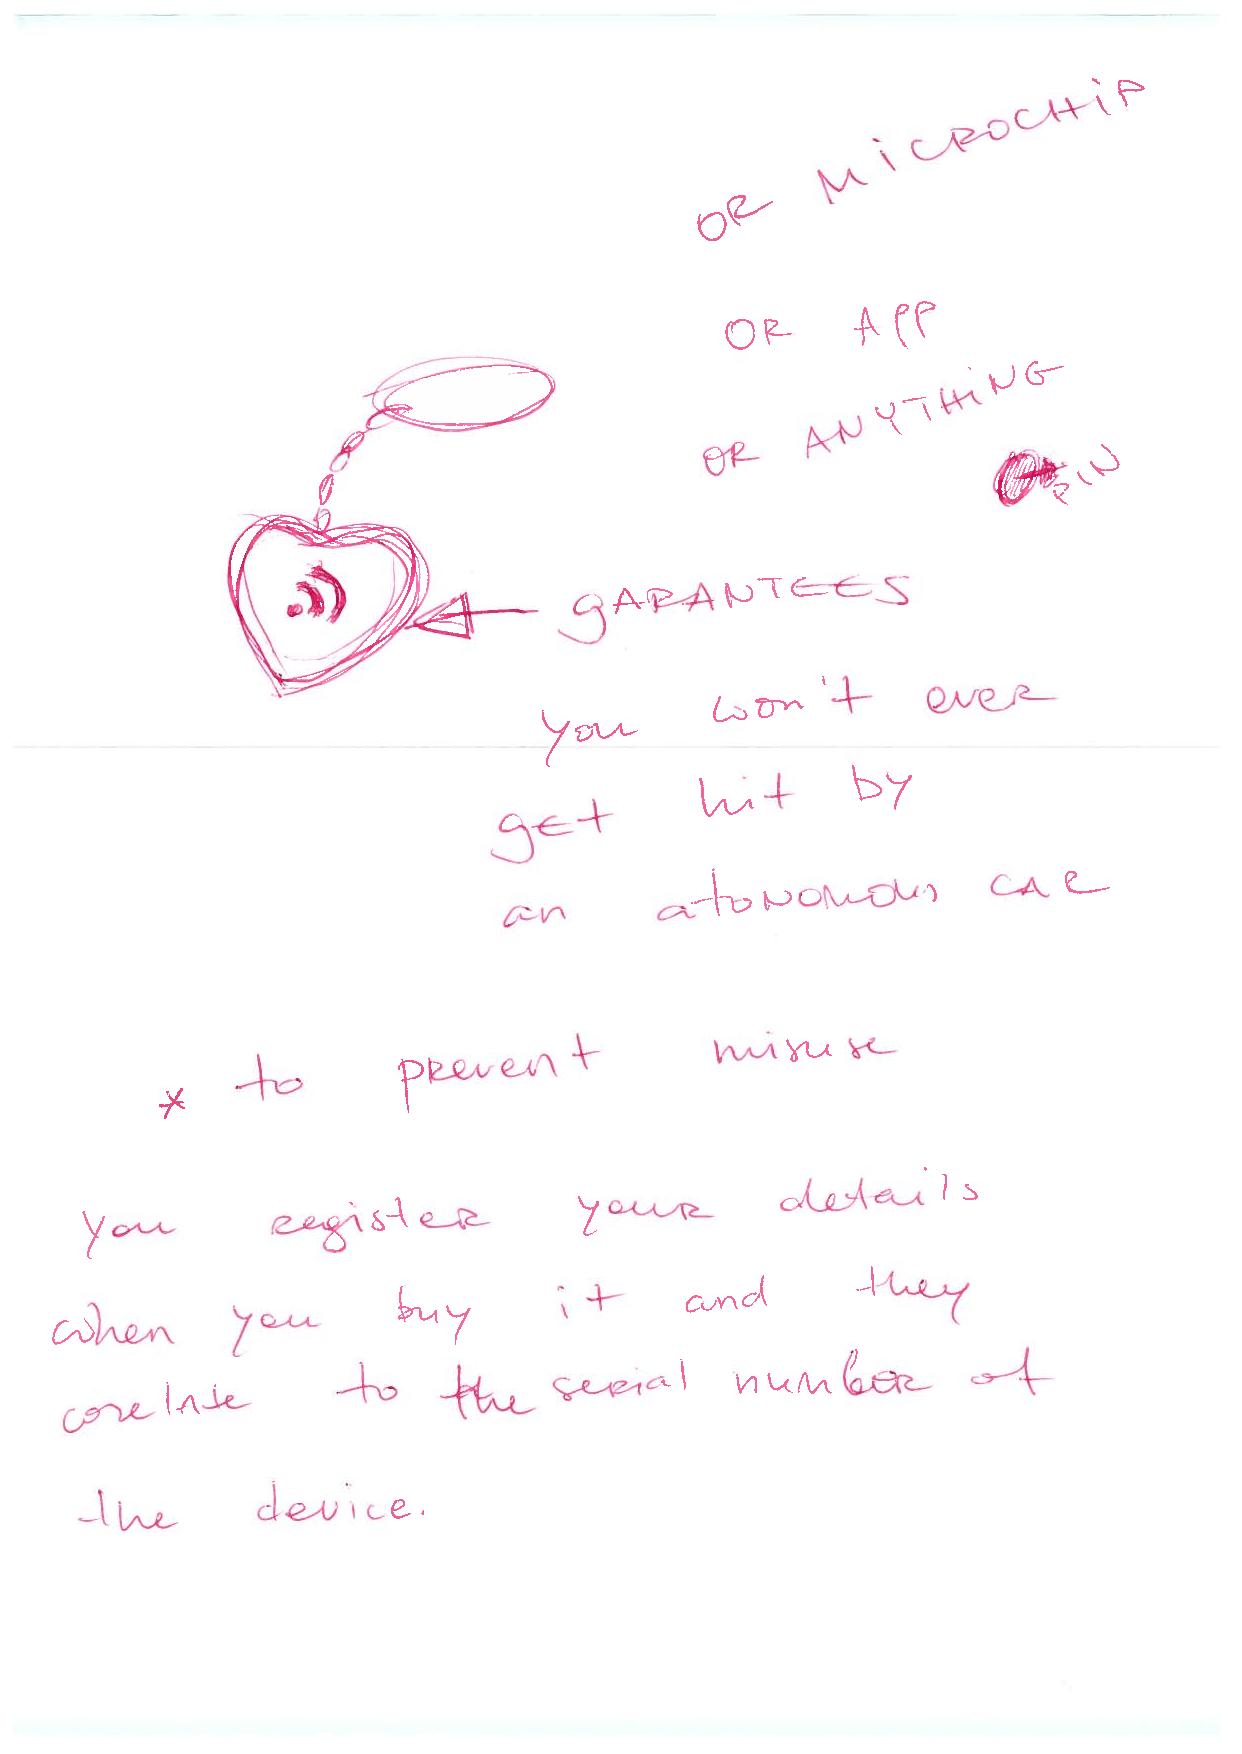 OR MiCROCHiP
OR APP
OR ANYTHiNG
PIN
gARANTEES
you won't ever
get hit by
an atonomous car
* to prevent misuse
you register your details
when you buy it and they
corelate to the serial number of
the device.